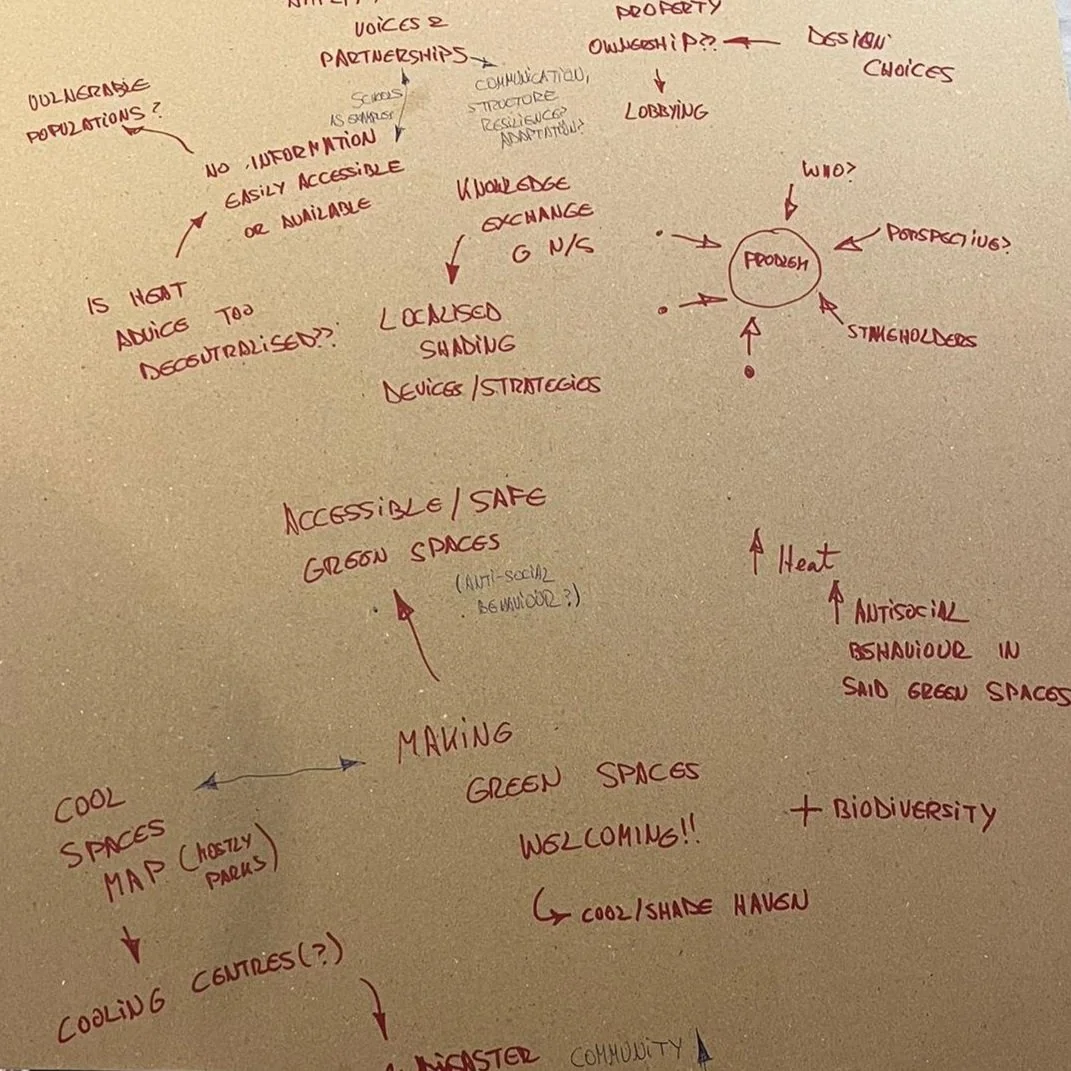 VOICES &
PARTNERSHIPS
PROPERTY
OWNERSHIP??
DESIGN
CHOICES
LOBBYING
VULNERABLE
POPULATIONS?
SCHOOLS
AS EXAMPLE?
COMMUNICATION,
STRUCTURE
RESILIENCE?
ADAPTATION?
NO INFORMATION
EASILY ACCESSIBLE
OR AVAILABLE
KNOWLEDGE
EXCHANGE
G N/S
WHO?
PERSPECTIVE?
PROBLEM
STAKEHOLDERS
IS HEAT
ADVICE TOO
DECENTRALISED??
LOCALISED
SHADING
DEVICES/STRATEGIES
ACCESSIBLE/SAFE
GREEN SPACES
(ANTI-SOCIAL
BEHAVIOUR?)
↑ Heat
↑ ANTISOCIAL
BEHAVIOUR IN
SAID GREEN SPACES
MAKING
GREEN SPACES
WELCOMING!!
+ BIODIVERSITY
COOL/SHADE HAVEN
COOL
SPACES
MAP (MOSTLY
PARKS)
COOLING CENTRES(?)
DISASTER COMMUNITY